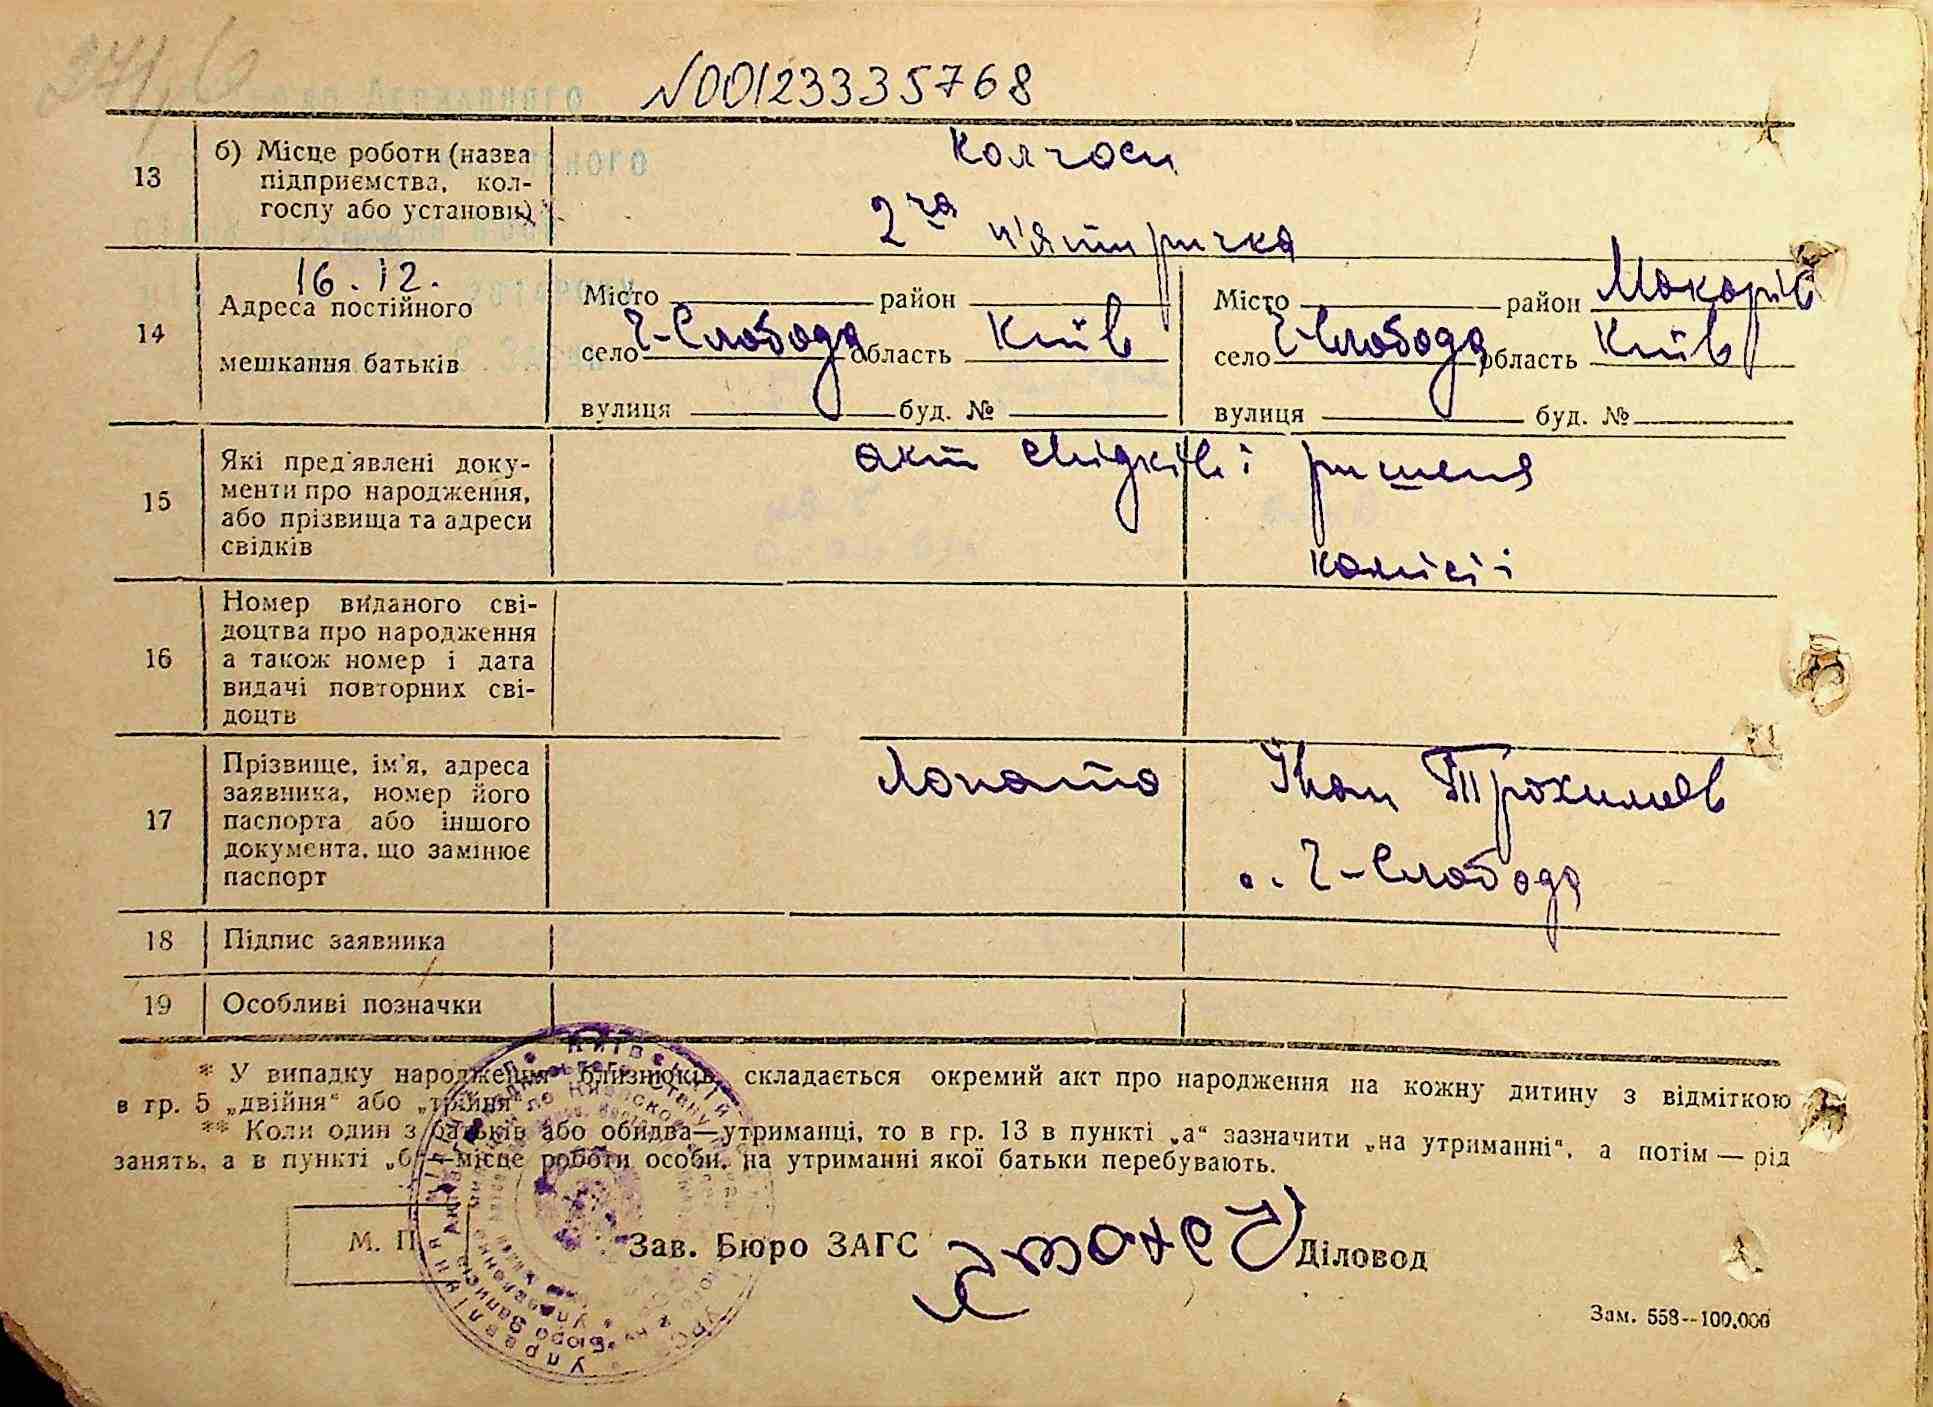 №00123335768
13 б) Місце роботи (назва
підприємства, кол-
госпу або установи)
Колгосп
2га п'ятирічка
16.12.
14 Адреса постійного
мешкання батьків
Місто район
село Г-Слобода область Київ
вулиця буд. №
Місто район Макарів
село Г-Слобода область Київ
вулиця буд. №
15 Які пред'явлені доку-
менти про народження,
або прізвища та адреси
свідків
акт свідків і ришеня
комісіі
16 Номер виданого сві-
доцтва про народження
а також номер і дата
видачі повторних сві-
доцтв
17 Прізвище, ім'я, адреса
заявника, номер його
паспорта або іншого
документа, що замінює
паспорт
Лопата Іван Трохимов
с. Г-Слобода
18 Підпис заявника
19 Особливі позначки
* У випадку народження близнюків, складається окремий акт про народження на кожну дитину з відміткою
в гр. 5 „двійня" або „трійня"
** Коли один з батьків або обидва—утриманці, то в гр. 13 в пункті „а" зазначити „на утриманні", а потім — рід
занять, а в пункті „б"—місце роботи особи, на утриманні якої батьки перебувають.
М. П.
Зав. Бюро ЗАГС Діловод
Зам. 558--100.000